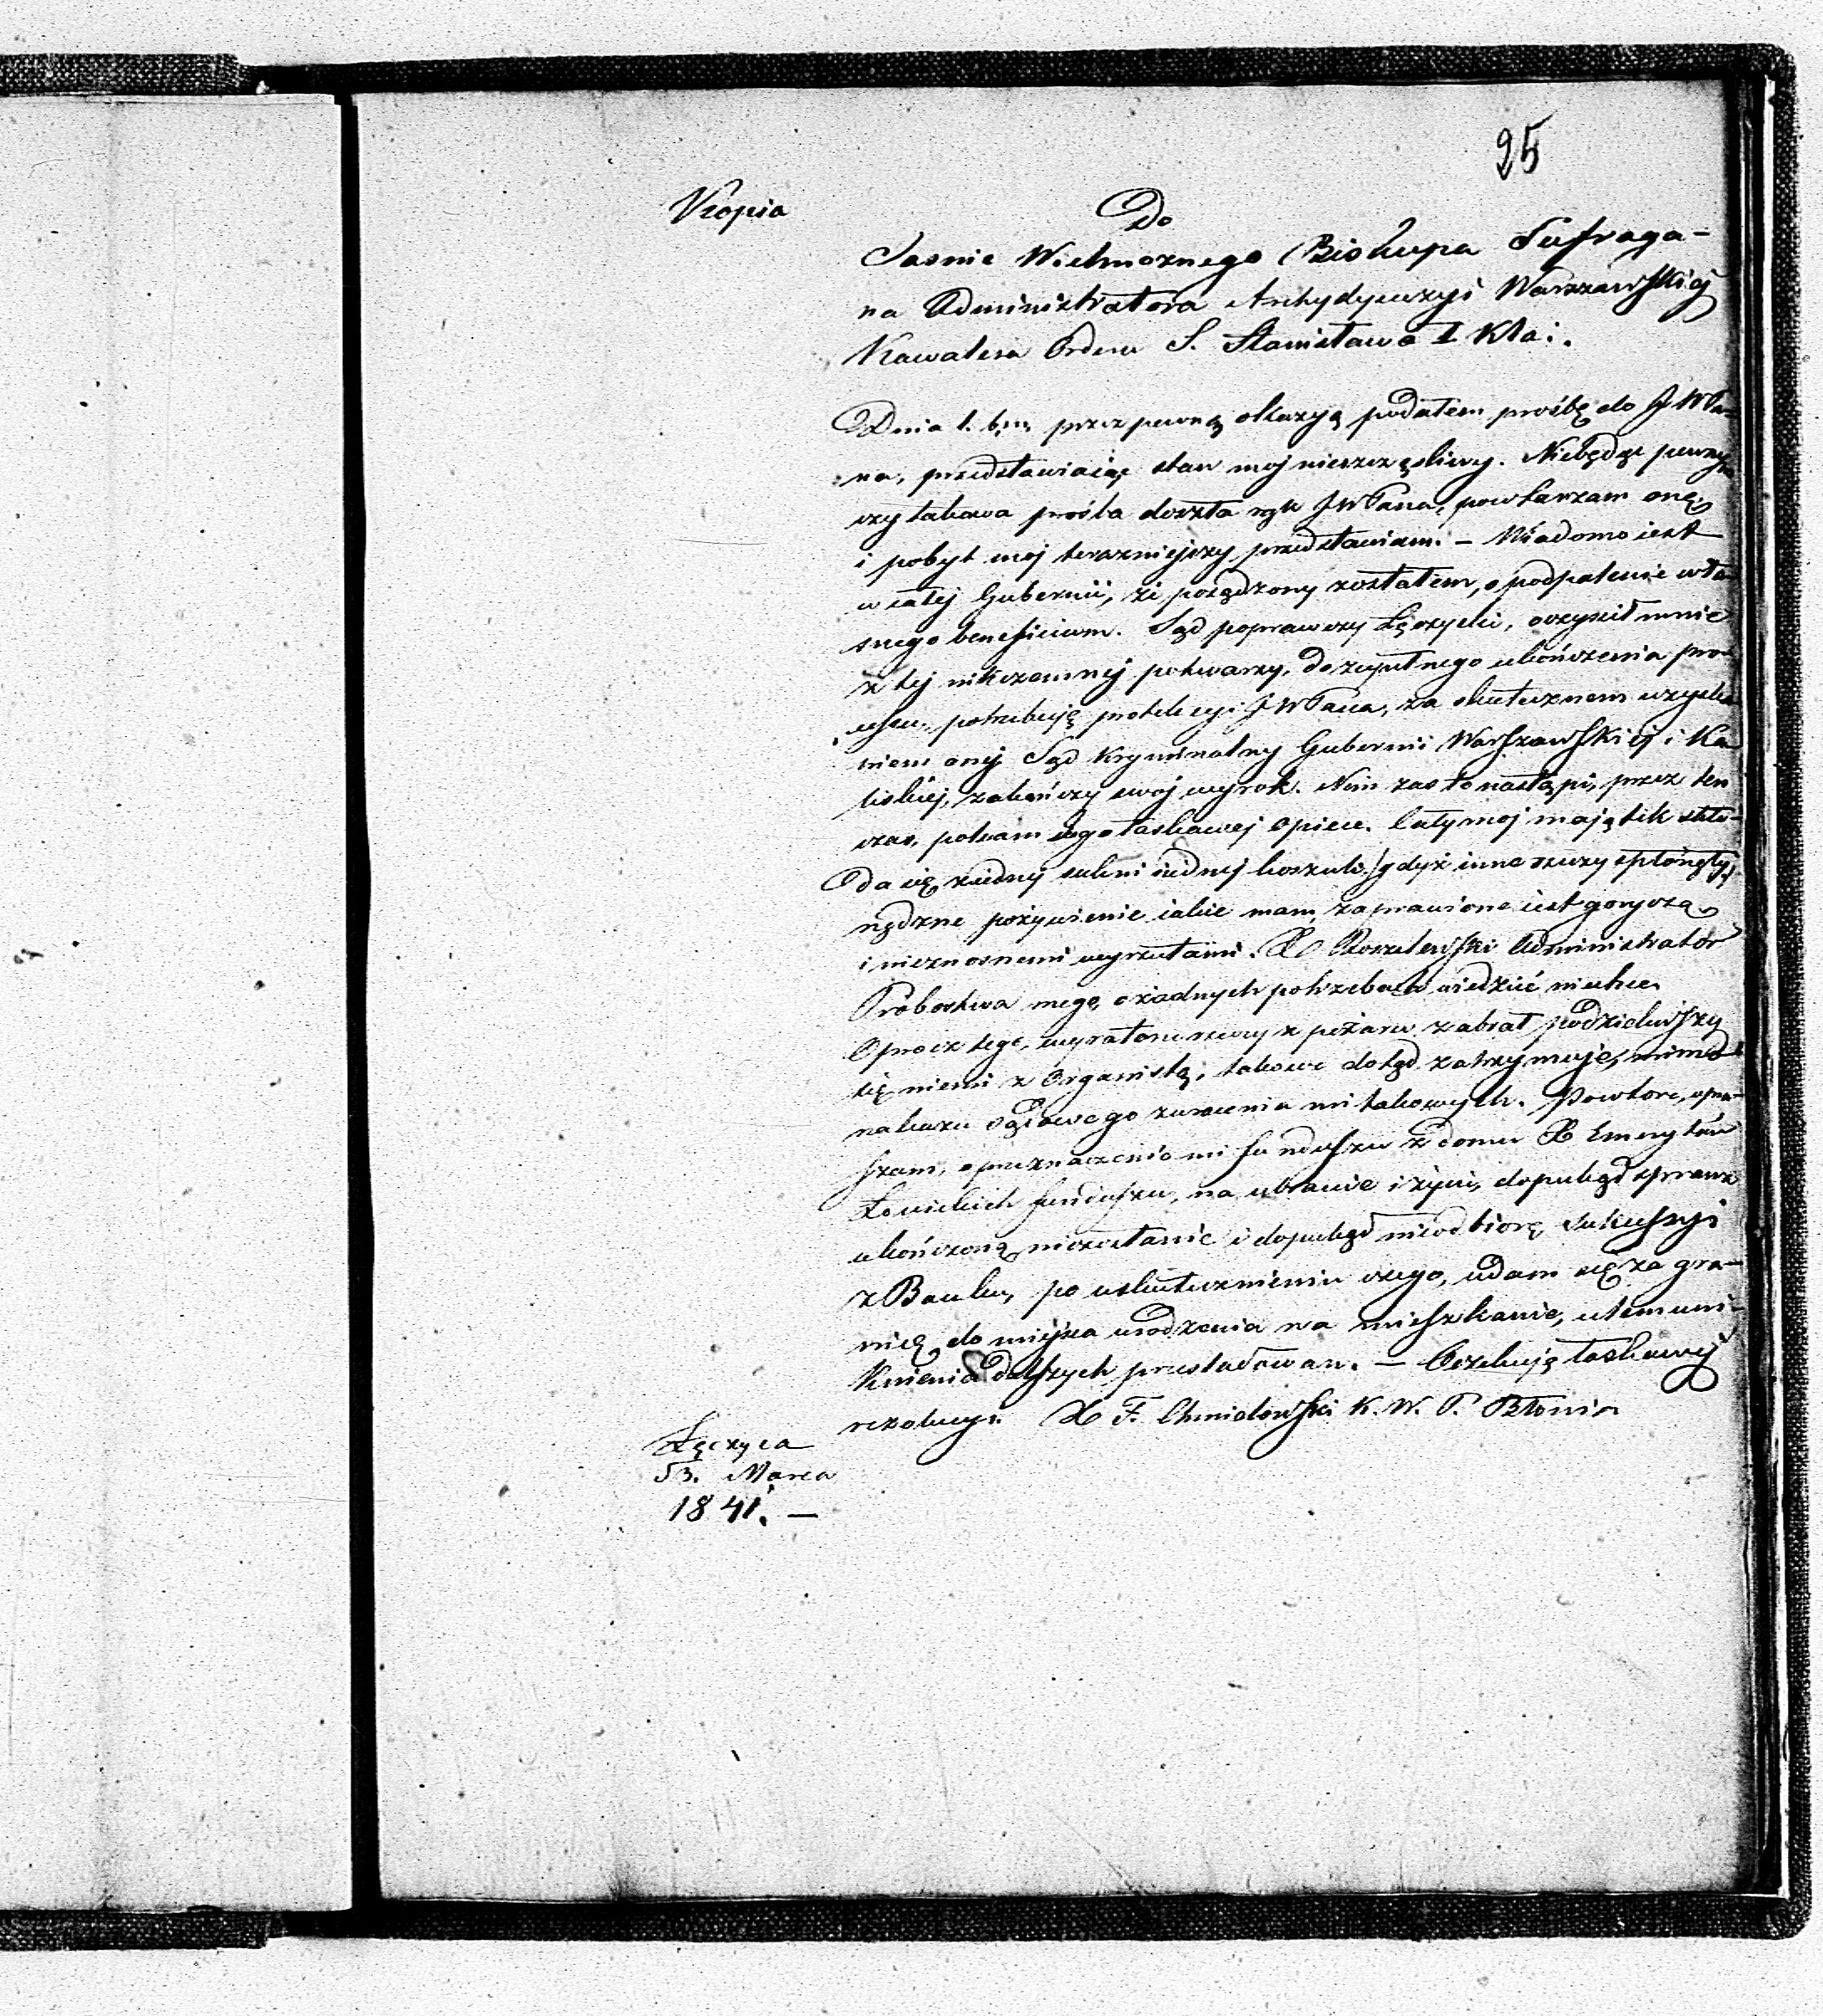 25
Kopia
Do
Jasnie Wielmoznego Biskupa Sufraga-
na Administratora Archydyecezyi Warszawskiej
Kawalera Orderu S. Stanisława I Kla:.
Dnia 1. b.m. przez pewną okazyą podałem prośbę do JWPa-
na, przedstawiaiąc stan moj nieszczęsliwy. Niebędąc pewnym
czy takowa prośba doszła rąk JWPana, powtarzam onę,
i pobyt moj terazniejszy przedstawiam. – Wiadomo iest
w całej Gubernii, że posądzony zostałem, o podpalenie wła-
snego beneficium. Sąd poprawczy Łęczycki, oczyscił mnie
z tej nikczemnej potwarzy, do zupełnego ukończenia pro-
cessu, potrzebuję protekcyi JWPana, za skutecznem uzyska-
niem onej Sąd Kryminalny Gubernii Warszawskiej i Ka-
liskiej, zakończy swój wyrok. Nim zas to nastąpi, przez ten
czas, polecam się Jego łaskawej opiece. Cały moj majątek skła-
da się z iedny sukni iednej koszuli /gdyż inne rzeczy spłonęły/
nędzne pożywienie iakie mam, zaprawione iest goryczą,
i nieznosnemi wyrzutami. X Koszulewski Administrator
Probostwa mego, o żadnych potrzebach wiedzieć niechce.
Oprocz tego, wyratow: rzeczy z pożaru zabrał, podzieliwszy
się niemi z Organistą, takowe dotąd zatrzymuje, mimo
nakazu sądowego zwrocenia mi takowych. Powtore, upra-
szam, o przeznaczenie mi funduszu z domu XX Emerytów
Łowickich funduszu, na ubranie i życie, dopokąd sprawa
ukończoną niezostanie i dopokąd nieodbiorę sukcessyi
z Banku, po uskutecznieniu czego, udam się za gra-
nicę do miejsca urodzenia na mieszkanie, celem uni-
knienia dalszych przesladowan. – Oczekuję łaskawej
rezolucyi. X F. Chmielowski K. W. P. Błonia
Łęczyca
53. Marca
1841. –